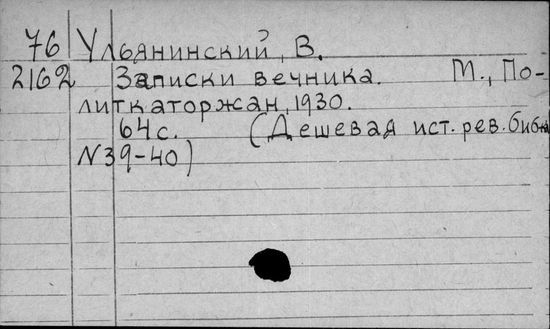 76 Ульянинский, В.
2162 Записки вечника. М., По-
литкаторжан, 1930.
64с. (Дешевая ист. рев. биб-ка
N39-40)